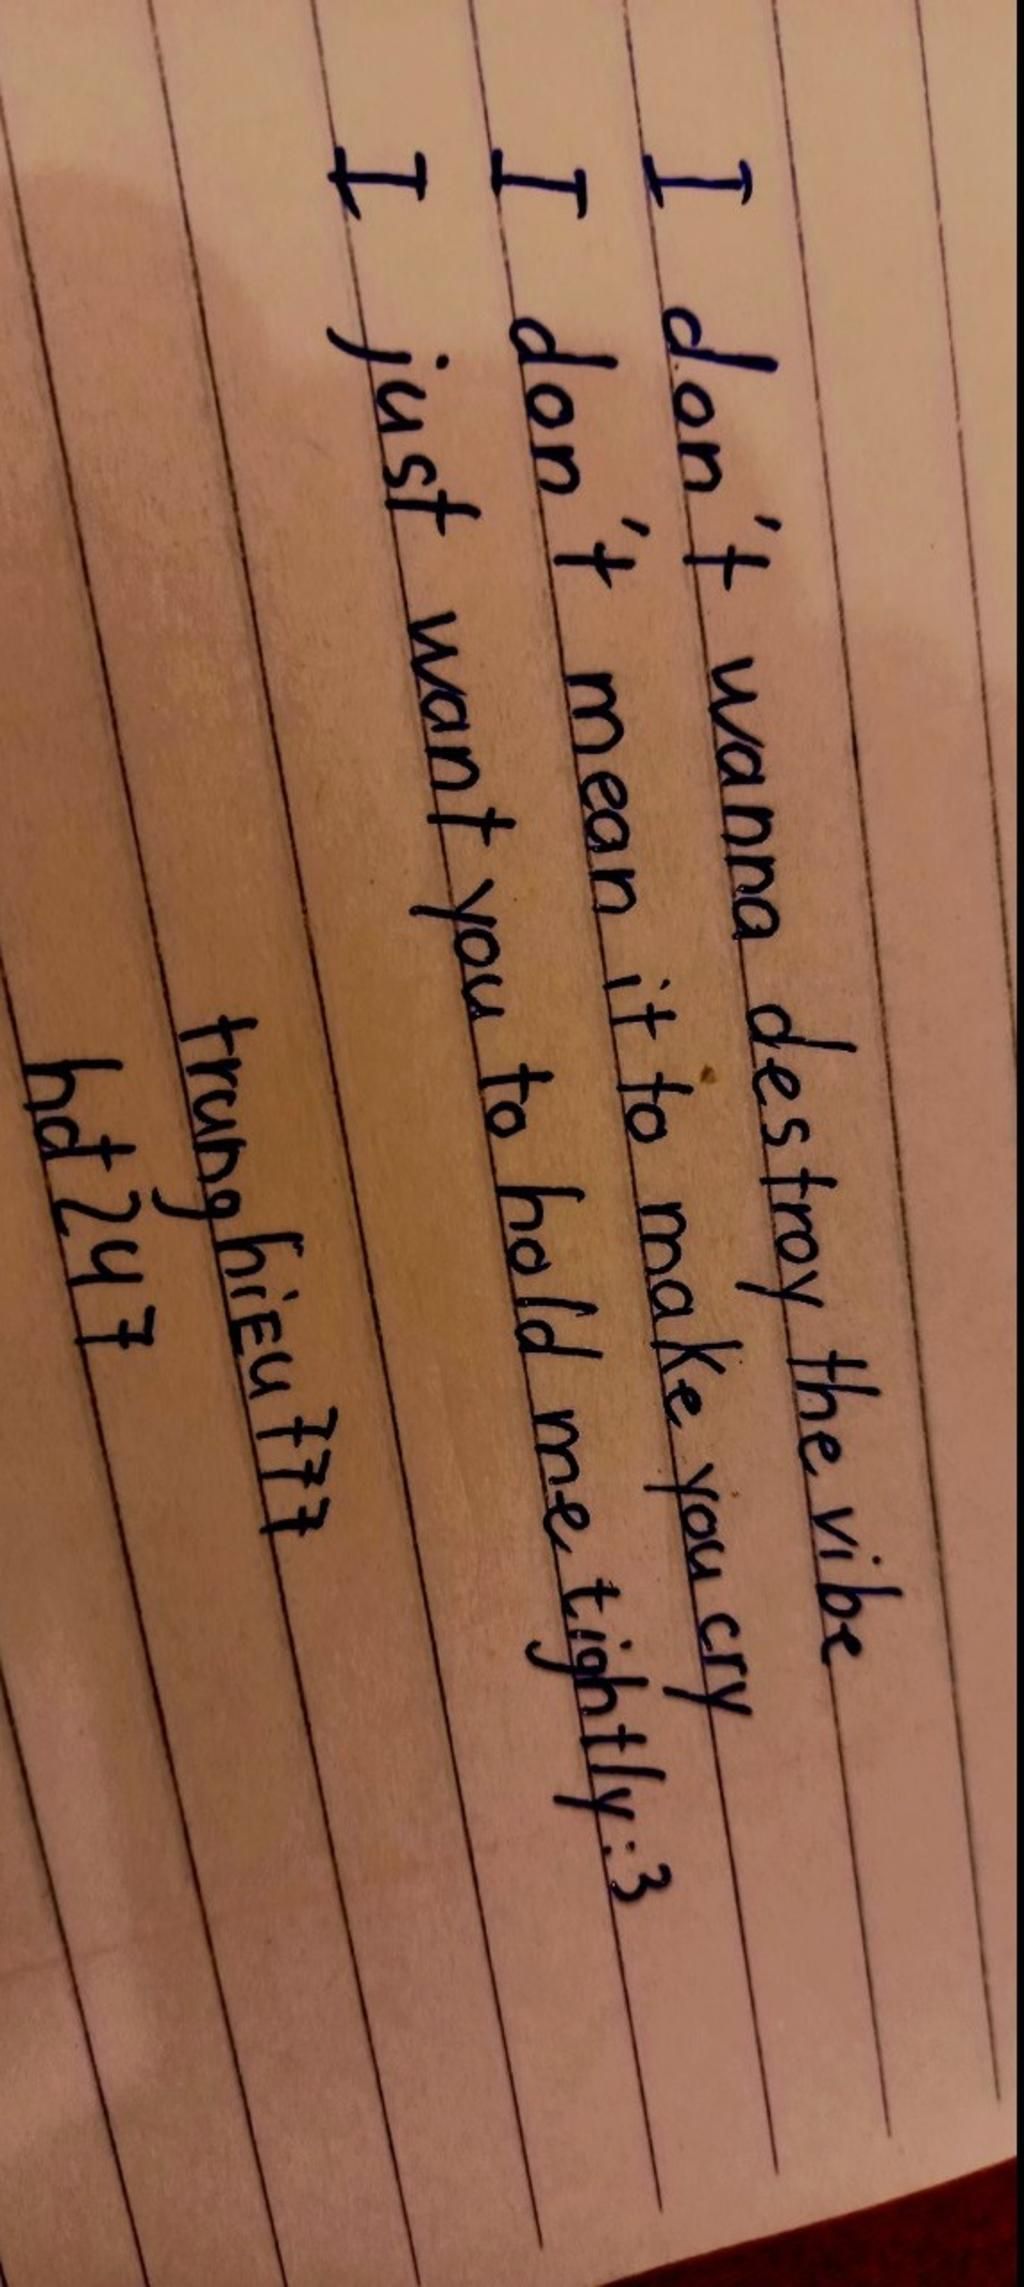 I don't wanna destroy the vibe
I don't mean it to make you cry
I just want you to hold me tightly :3
trunghiEu777
hdt247